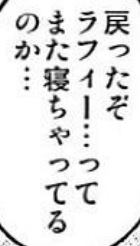 戻ったぞ
ラフィー…って
また寝ちゃってる
のか…